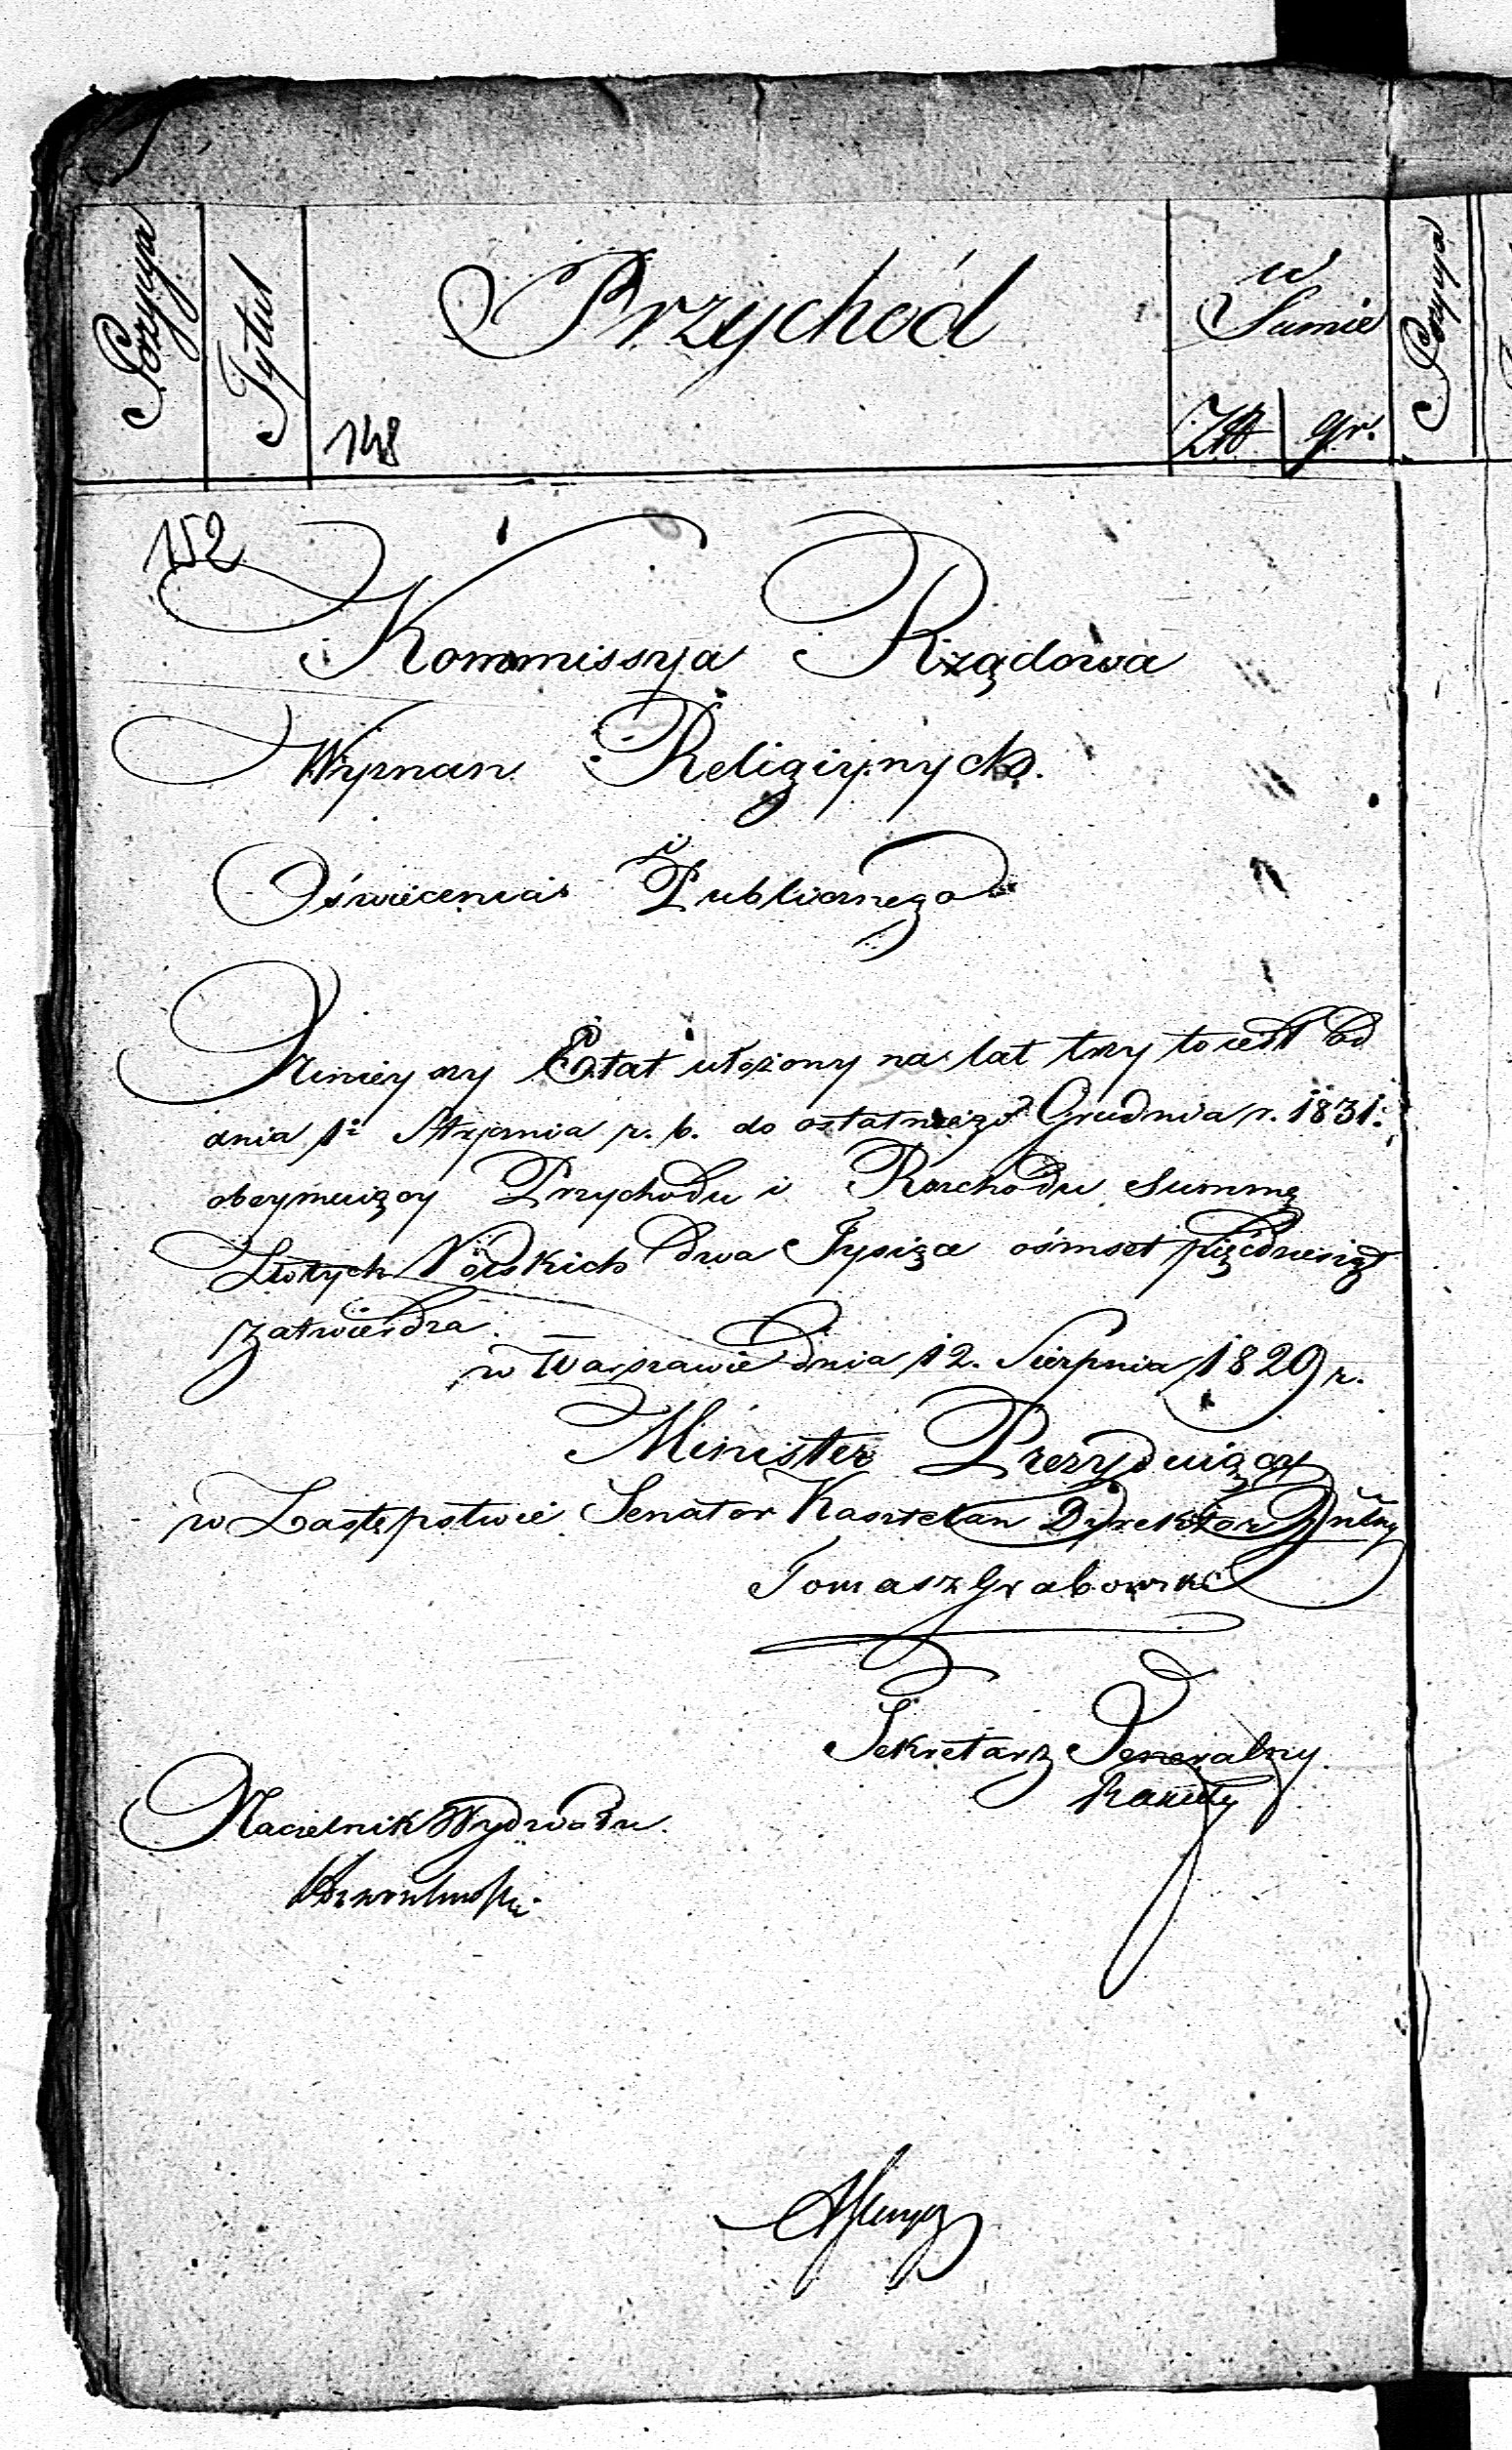 Pozycya
Tytuł
Przychód
w
Summie
Złt gr.
Pozycya
148
152
Kommissya Rządowa
Wyznań Religiynych
i
Oświecenia Publicznego
Ninieyszy Etat ułożony na lat trzy to iest od
dnia 1º Stycznia r. b. do ostatniego Grudnia r. 1831.
obeymuiący Przychodu i Rozchodu Summę
Złotych Polskich dwa Tysiące ośmset pięćdziesiąt
zatwierdza. —
w Warszawie dnia 12. Sierpnia 1829 r.
Minister Prezyduiący
w Zastępstwie Senator Kasztelan Dyrektor Jnlny
Tomasz Grabowski
Sekretarz Jeneralny
Naczelnik Wydziału